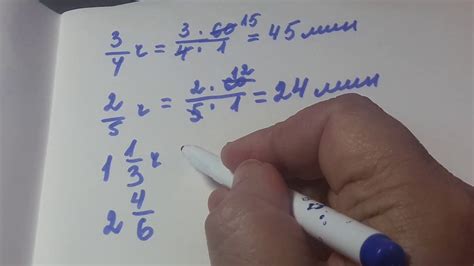 3/4 ч = 3 · 60 15 / 4 · 1 = 45 мин
2/5 ч = 2 · 60 12 / 5 · 1 = 24 мин
1 1/3 ч
2 4/6